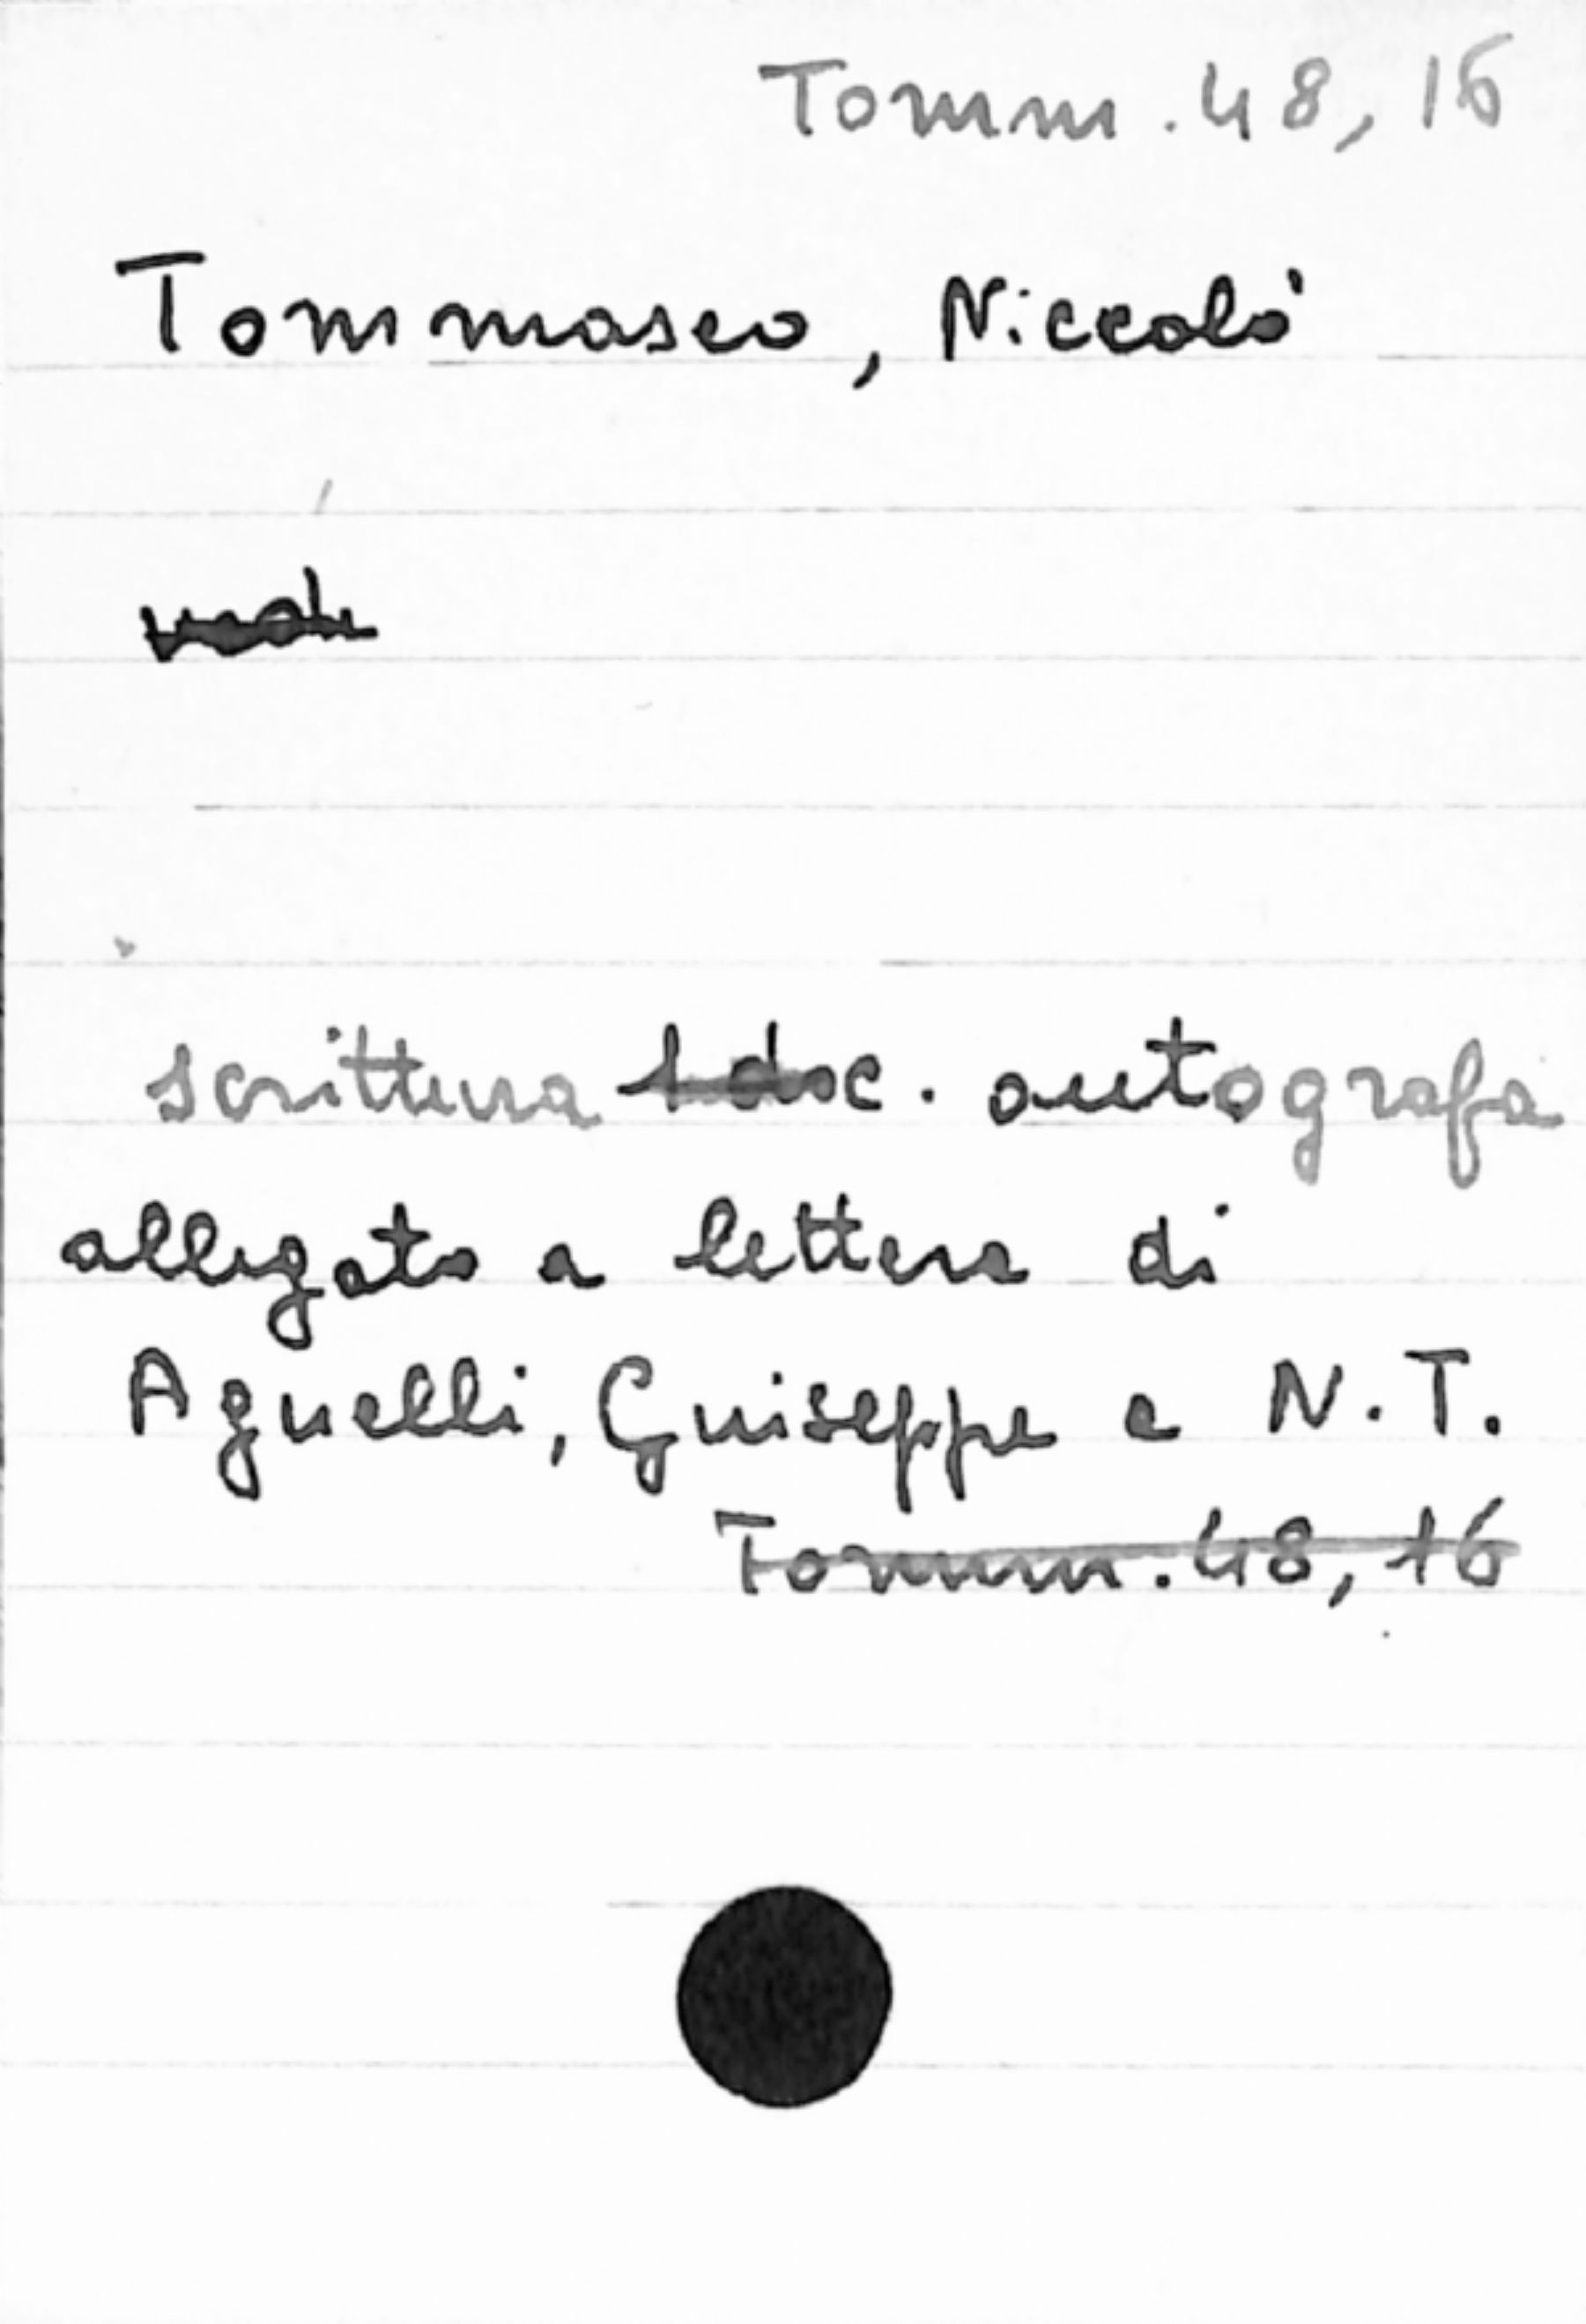 Tomm. 48, 16
Tommaseo, Niccolò
scrittura 1 doc. autografa
allegato a lettera di
Agnelli, Giuseppe a N.T.
Tomm. 48, 16